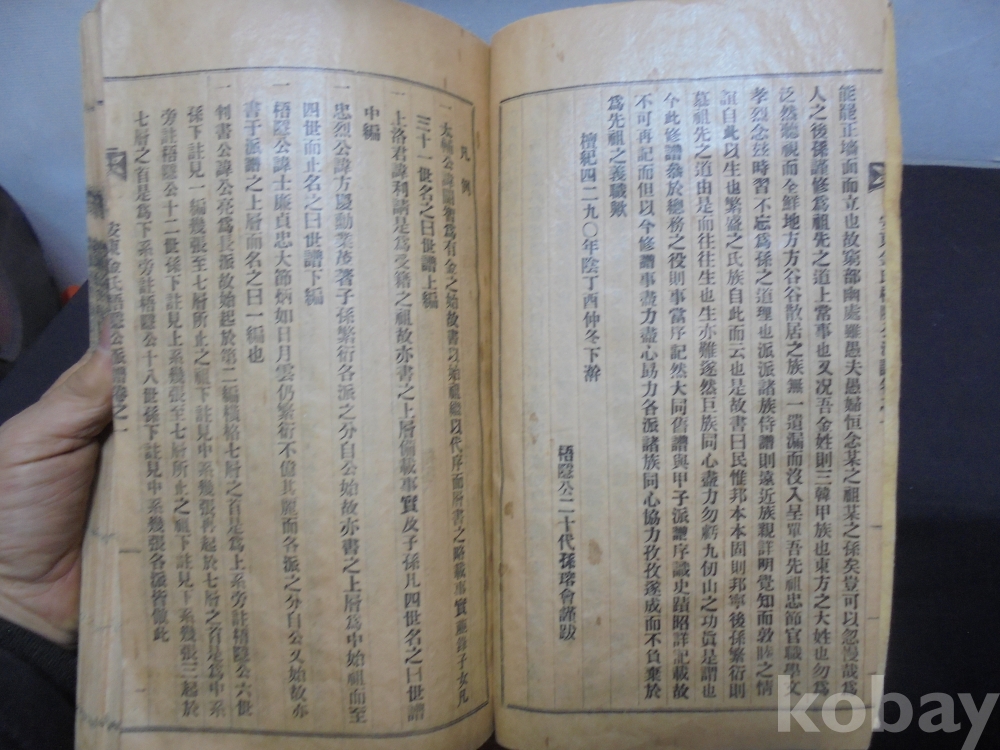 能罷正墻面而立也故窮部幽處雖愚夫愚婦恒念某之祖某之孫矣豈可以忽慢哉爲
人之後孫謹修爲祖先之道上常事也又况吾金姓則三韓甲族也東方之大姓也勿爲
泛然總視而全鮮地方方谷谷散居之族無一遺漏而沒入呈單吾先祖忠節官職學文
孝烈念玆時習不忘爲孫之道理也派派諸族侍譜則遠近族親詳明覺知而敦睦之情
誼自此以生也繁盛之氏族自此而云也是故書曰民惟邦本本固則邦寧後孫繁衍則
墓祖先之道由是而往往生也生亦難遂然巨族同心盡力勿虧九仞山之功眞是謂也
今此修譜叅於總務之役則事當序記然大同舊譜與甲子派譜序識史蹟昭詳記載故
不可再記而但以今修譜事盡力盡心勗力各派諸族同心協力孜孜遂成而不負棄於
爲先祖之義職歟
檀紀四二九〇年陰丁酉仲冬下澣
梧隱公二十代孫瑢會謹跋
凡例
一 太輔公諱閼智爲有金之始故書以始祖繼以代序而所書之略載事實兼錄子女凡
三十一世名之曰世譜上編
一 上洛君諱利請是爲受籍之祖故亦書之上層備載事實及子孫凡四世名之曰世譜
中編
一 忠烈公諱方慶勳業茂著子孫繁衍各派之分自公始故亦書之上層爲中始祖而至
四世而此名之曰世譜下編
一 梧隱公諱士廉貞忠大節炳如日月雲仍繁衍不億其麗而各派之分自公又始故亦
書于派譜之上層而名之曰一編也
一 判書公諱公亮爲長派故始起於第二編橫格七層之首是爲上系旁註梧隱公六世
孫下註見一編幾張至七層所止之祖下註見中系幾張再起於七層之首是爲中系
旁註梧隱公十二世孫下註見上系幾張至七層所止之祖下註見下系幾張三起於
七層之首是爲下系旁註梧隱公十八世孫下註見中系幾張各派皆倣此
安東金氏梧隱公派譜卷之一
kobay